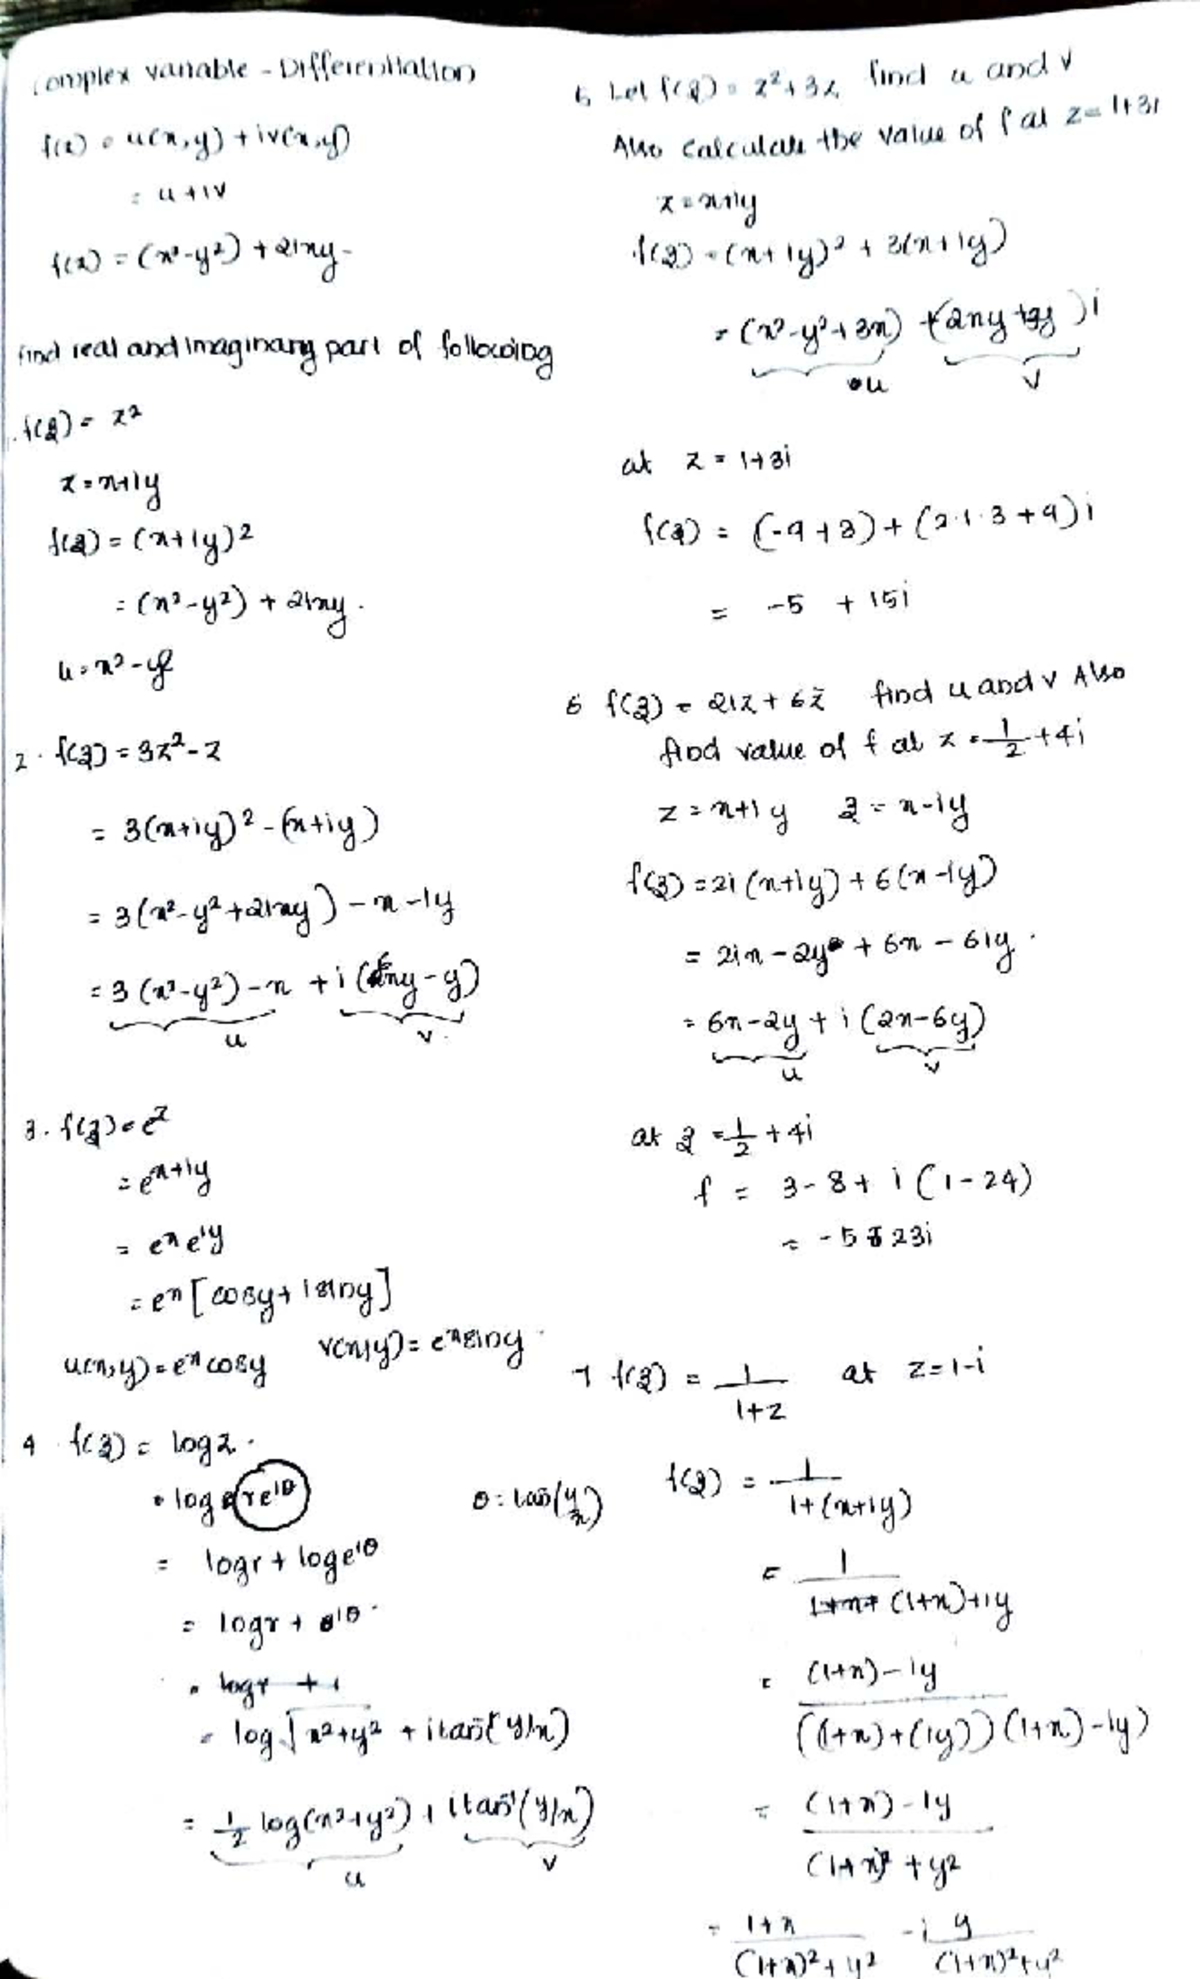 complex variable - Differentiation
f(z) = u(x,y) + iv(x,y)
= u + iv
f(z) = (x²-y²) + 2ixy -
find real and imaginary part of following
. f(z) = z²
z = x+iy
f(z) = (x+iy)2
= (x²-y²) + 2ixy .
u = x² - y2
2 . f(z) = 3z² - z
= 3(x+iy)² - (x+iy)
= 3(x²-y²+2ixy) - x - iy
= 3(x²-y²) - x + i(6xy - y)
u v .
3 . f(z) = e^z
= e^x+iy
= e^x e^iy
= e^x [cosy + isiny]
u(x,y) = e^x cosy v(x,y) = e^x siny .
4 . f(z) = log z .
= log re^iθ θ = tan⁻(y/x)
= log r + log e^iθ
= log r + iθ .
= log r + i
= log √x²+y² + i tan⁻(y/x)
= 1/2 log(x²+y²) + i tan⁻¹(y/x)
u v
5 Let f(z) = z²+3z, find u and v
Also calculate the value of f at z = 1+3i
z = x+iy
f(z) = (x+iy)² + 3(x+iy)
= (x²-y²+3x) + (2xy+3y)i
u v
at z = 1+3i
f(z) = (-9+3) + (2·1·3+9)i
= -5 + 15i
6 f(z) = 2iz + 6z̄ find u and v Also
find value of f at z = 1/2 + 4i
z = x+iy z̄ = x-iy
f(z) = 2i(x+iy) + 6(x-iy)
= 2ix - 2y + 6x - 6iy .
= 6x - 2y + i(2x-6y)
u v
at z = 1/2 + 4i
f = 3 - 8 + i(1-24)
= -5 - 23i
7 f(z) = 1/1+z at z = 1-i
f(z) = 1/1+(x+iy)
= 1/1+x+ (1+x)+iy
= (1+x)-iy/((1+x)+(iy))(1+x)-iy)
= (1+x)-iy/(1+x)²+y²
= 1+x/(1+x)²+y² - i y/(1+x)²+y²